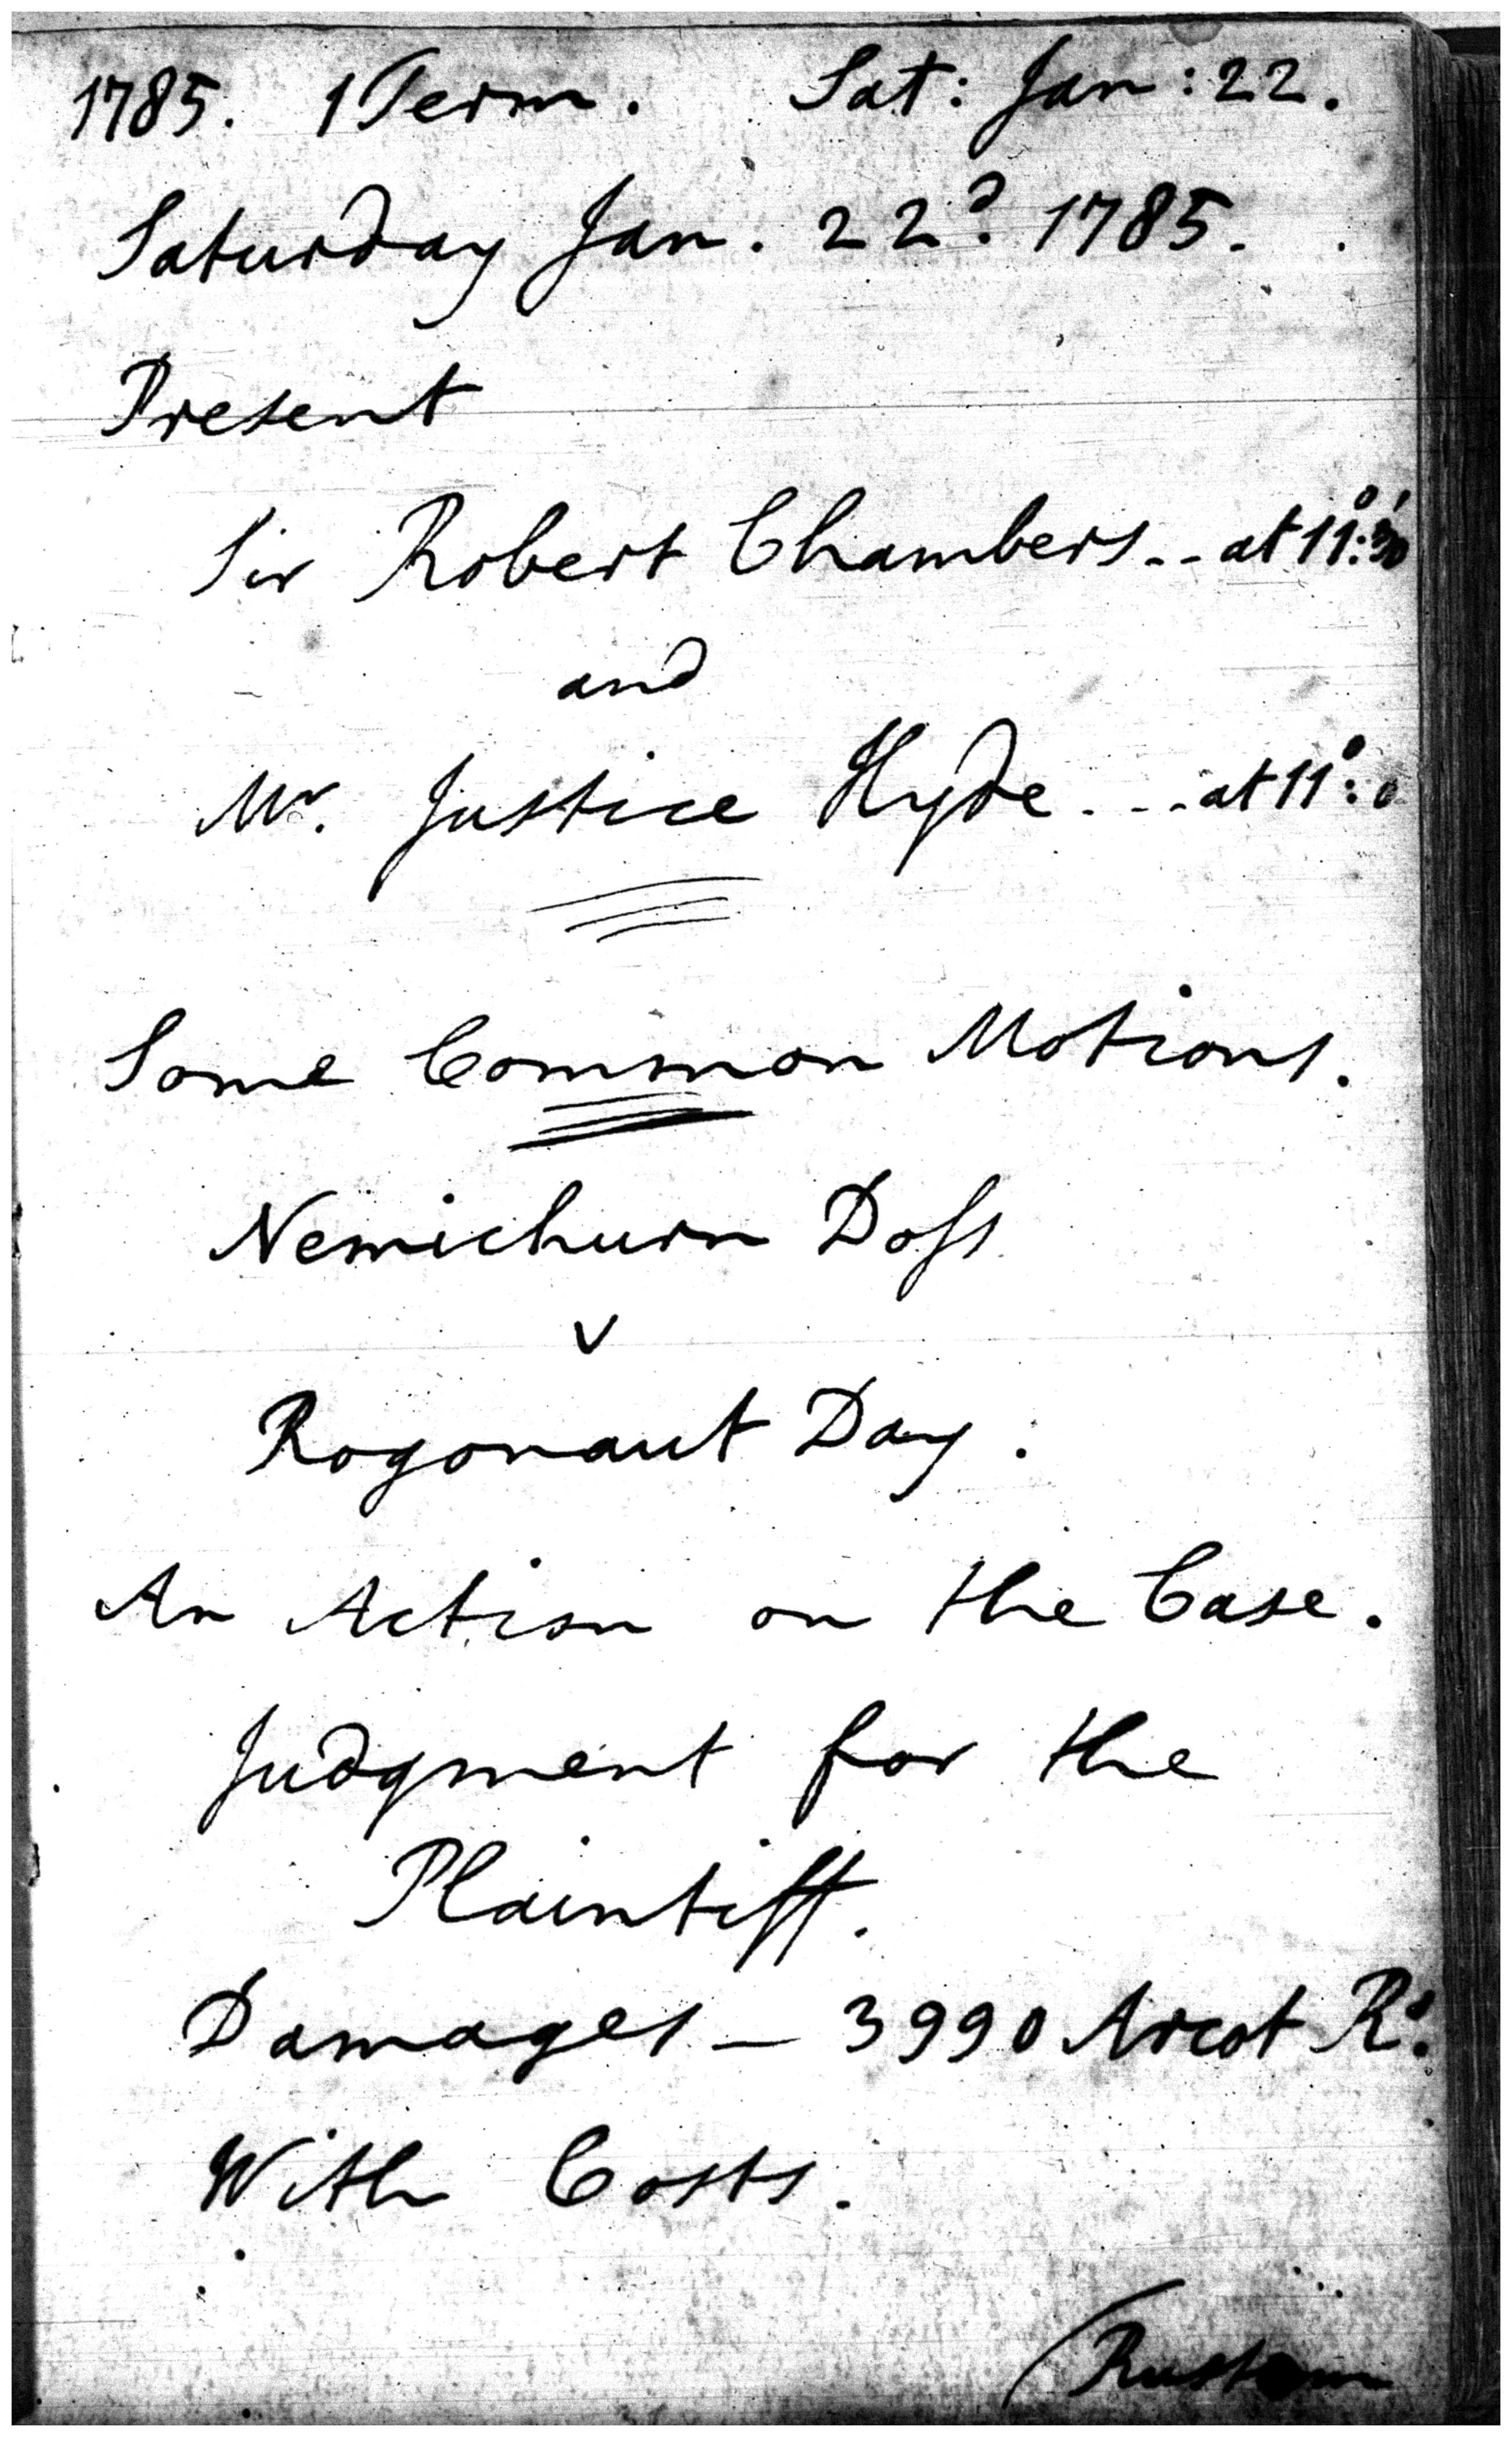 1785. 1 Term. Sat: Jan: 22.
Saturday Jan. 22d. 1785.
Present
Sir Robert Chambers -- at 11°:30'
and
Mr. Justice Hyde - - - at 11°: 0
Some Common Motions.
Nemichurn Doſs
v
Rogonaut Day.
An Action on the Case.
Judgment for the
Plaintiff.
Damages — 3990 Arcot Rs.
With Costs.